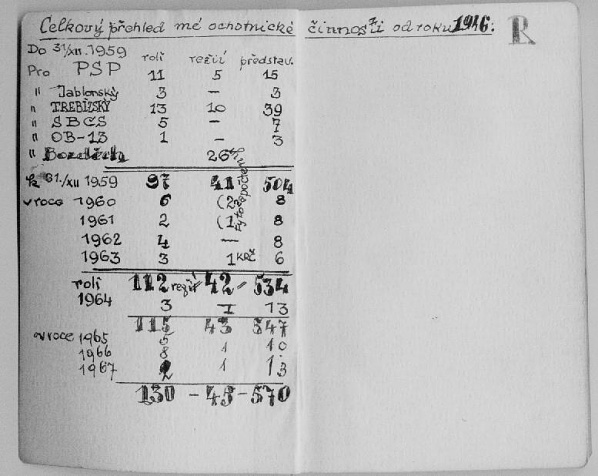 Celkový přehled mé ochotnické činnosti od roku 1916. R
Do 31/XII. 1959 rolí režií představ.
Pro PSP 11 5 15
" Jablonský 3 – 3
" TREBÍJSKÝ 13 10 39
" SBČS 5 – 7
" OB-13 1 – 3
" 26
k 31./XII 1959 97 41 504
v roce 1960 6 (2 8
1961 2 (1 8
1962 4 — 8
1963 3 1 KRČ 6
rolí 112 režií 42 – 534
1964 3 I 13
115 43 547
v roce 1965 5 1 10
1966 8 1 10
1967 2 1 13
130 – 45 – 570